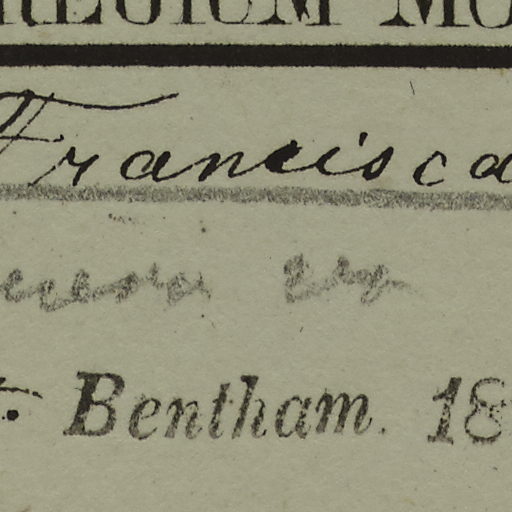 REGIUM MO
Francisca
t. Bentham. 18